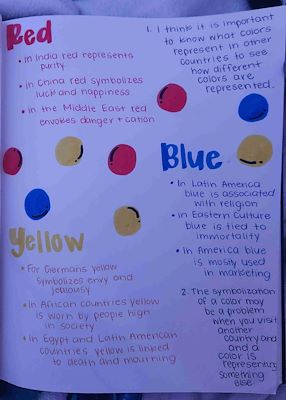 Red
• In India red represents
purity
• In China red symbolizes
luck and happiness
• In the Middle East red
envokes danger + cation
1. I think it is important
to know what colors
represent in other
countries to see
how different
colors are
represented.
Blue
• In Latin America
blue is associated
with religion
• In Eastern Culture
blue is tied to
immortality
• In America blue
is mostly used
in marketing
Yellow
• For Germans yellow
symbolizes envy and
jealousy
• In African countries yellow
is worn by people high
in society
• In Egypt and Latin American
countries yellow is linked
to death and mourning
2. The symbolization
of a color may
be a problem
when you visit
another
country and
and a
color is
representing
something
else.